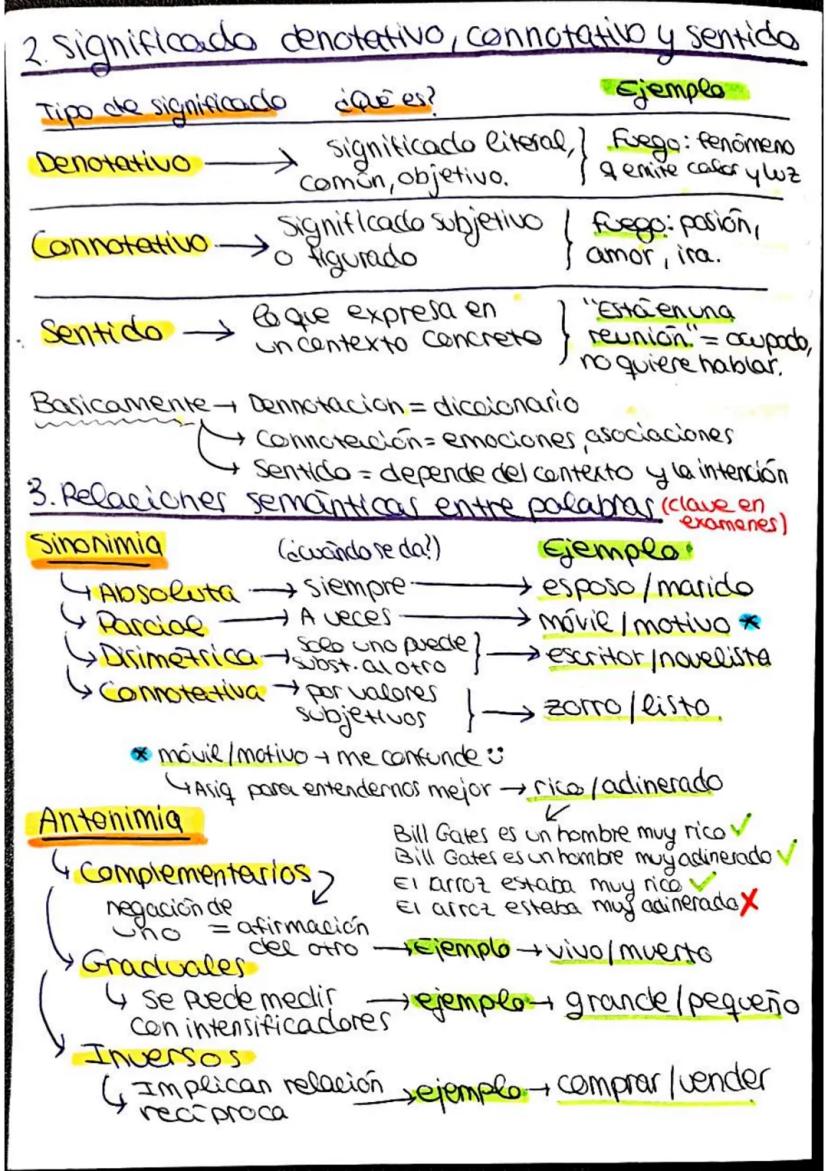 2. Significado denotativo, connotativo y sentido
Tipo de significado ¿Qué es? Ejemplo
Denotativo → significado literal, común, objetivo. } Fuego: fenómeno q emite calor y luz
Connotativo → Significado subjetivo o figurado } fuego: pasión, amor, ira.
Sentido → lo que expresa en un contexto concreto } "Está en una reunión" = ocupado, no quiere hablar.
Basicamente → Dennotacion = diccionario
→ Connotación = emociones, asociaciones
→ Sentido = depende del contexto y la intención
3. Relaciones semánticas entre palabras (clave en examenes)
Sinonimia (¿cuándo se da?) Ejemplo:
↳ Absoluta → siempre → esposo / marido
↳ Parcial → A veces → móvil / motivo *
↳ Disimétrica → solo uno puede subst. al otro } → escritor / novelista
↳ Connotativa → por valores subjetivos } → zorro / listo
* móvil / motivo → me confunde ü
↳ Asiq para entendernos mejor → rico / adinerado
Bill Gates es un hombre muy rico ✓
Bill Gates es un hombre muy adinerado ✓
El arroz estaba muy rico ✓
El arroz estaba muy adinerado X
Antonimia
↳ Complementarios
negación de uno = afirmación del otro → Ejemplo → vivo / muerto
Graduales
↳ Se puede medir con intensificadores → ejemplo → grande / pequeño
Inversos
↳ Implican relación recíproca → ejemplo → comprar / vender